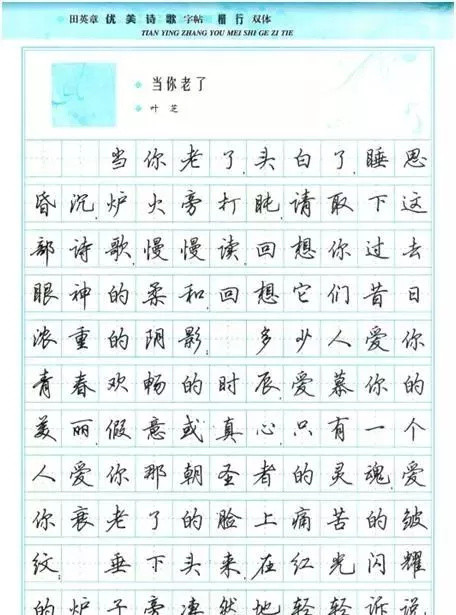 田英章 优美诗歌 字帖 楷行 双体
TIAN YING ZHANG YOU MEI SHI GE ZI TIE
当你老了
叶芝
当你老了,头白了,睡思
昏沉,炉火旁打盹,请取下这
部诗歌,慢慢读,回想你过去
眼神的柔和,回想它们昔日
浓重的阴影; 多少人爱你
青春欢畅的时辰,爱慕你的
美丽,假意或真心,只有一个
人爱你那朝圣者的灵魂,爱
你衰老了的脸上痛苦的皱
纹; 垂下头来,在红光闪耀
的炉子旁凄然地轻轻诉说